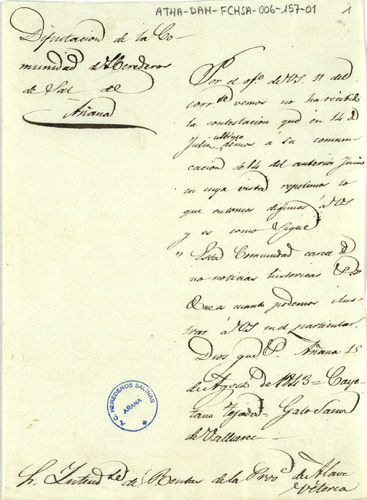 ATHA-DAH-FCHSA-006-157-01
1
Diputacion de la Co-
munidad de Herederos
de Sal de
Añana
Por el ofo. de VS. 11 del
corrte. vemos no ha recibido
la contestacion que en 14 de
Julio ultimo dimos a su comuni-
cacion de 14 del anterior Junio
en cuya vista repetimos lo
que entonces digimos á VS
y es como sigue
" Esta Comunidad carece de
noticias historicas
que a cuanto podemos ilus-
trar á VS en el particular.
Dios gue. Añana 15
de Agosto de 1843 = Caye-
tano Tejada = Galo Saenz
de
C. HEREDEROS SALINAS
AÑANA
Sr. Intendte. de Rentas de la Prova. de Alava
Vitoria